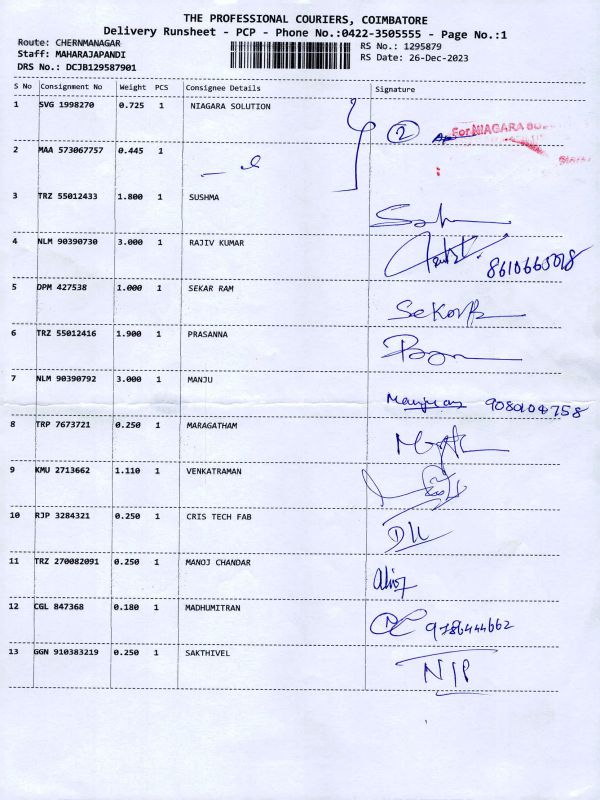 THE PROFESSIONAL COURIERS, COIMBATORE
Delivery Runsheet - PCP - Phone No.:0422-3505555 - Page No.:1
Route: CHERNMANAGAR RS No.: 1295879
Staff: MAHARAJAPANDI RS Date: 26-Dec-2023
DRS No.: DCJB129587901
S No Consignment No Weight PCS Consignee Details Signature
1 SVG 1998270 0.725 1 NIAGARA SOLUTION 2 For NIAGARA
2 MAA 573067757 0.445 1
3 TRZ 55012433 1.800 1 SUSHMA
4 NLM 90390730 3.000 1 RAJIV KUMAR
5 DPM 427538 1.000 1 SEKAR RAM
6 TRZ 55012416 1.900 1 PRASANNA
7 NLM 90390792 3.000 1 MANJU 9080104758
8 TRP 7673721 0.250 1 MARAGATHAM
9 KMU 2713662 1.110 1 VENKATRAMAN
10 RJP 3284321 0.250 1 CRIS TECH FAB
11 TRZ 270082091 0.250 1 MANOJ CHANDAR
12 CGL 847368 0.180 1 MADHUMITRAN
13 GGN 910383219 0.250 1 SAKTHIVEL